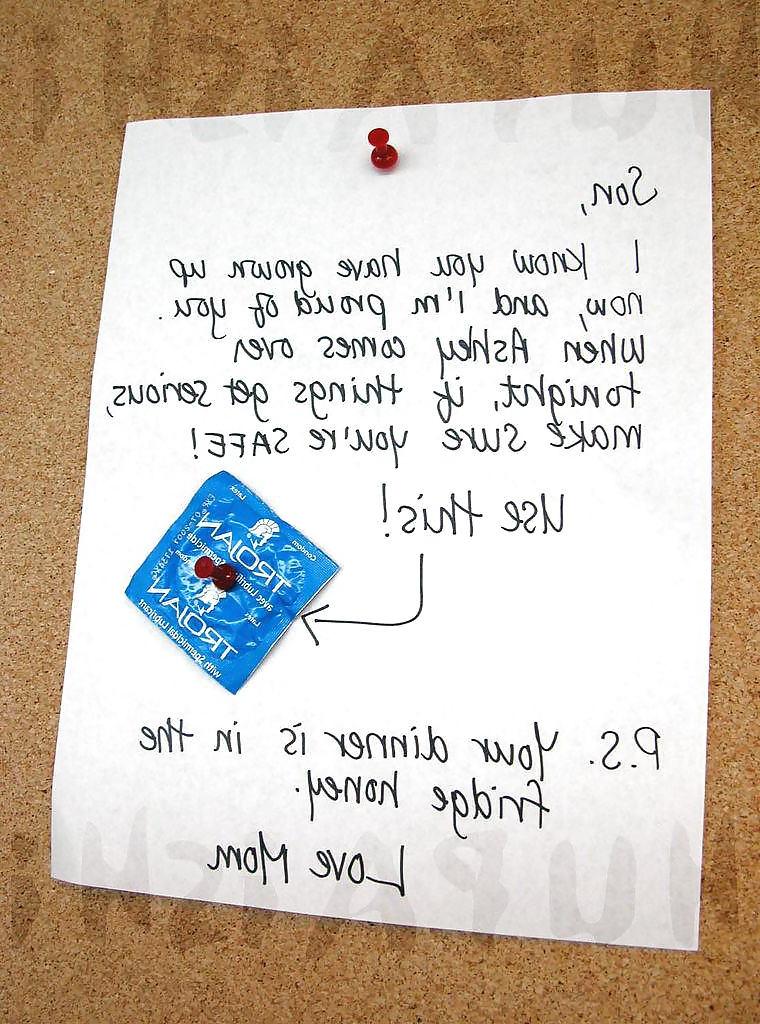 Son,
I know you have grown up
now, and I'm proud of you.
When Ashley comes over
tonight, if things get serious,
make sure you're SAFE!
Use this!
Latex
Condom
TROJAN
avec Lubrifiant Spermicide
Latex
TROJAN
with Spermicidal Lubricant
P.S. Your dinner is in the
fridge honey.
Love Mom